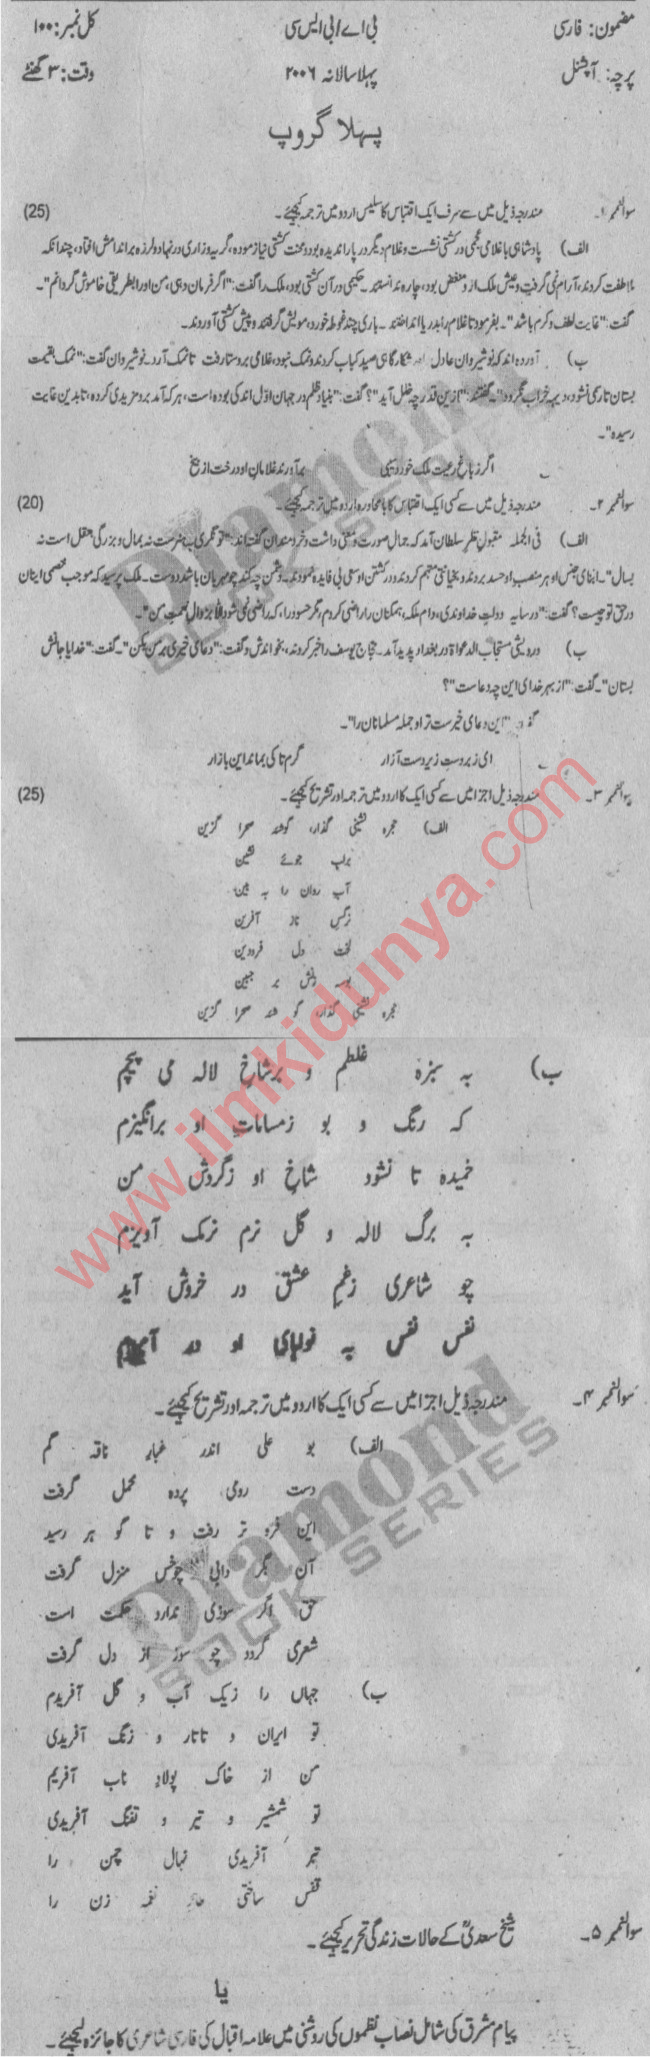 مضمون: فارسی بی اے/بی ایس سی کل نمبر: ۱۰۰
پرچہ: آپشنل پہلا سالانہ ۲۰۰۶ وقت: ۳ گھنٹے
پہلا گروپ
سوال نمبر ۱۔ مندرجہ ذیل میں سے صرف ایک اقتباس کا سلیس اردو میں ترجمہ کیجئے۔ (25)
الف) پادشاہی با غلامی عجمی در کشتی نشست و غلام دیگر دریا را ندیدہ بود و محنت کشتی نیازمودہ، گریہ و زاری در نہاد و لرزہ بر اندامش افتاد، چندانکہ
ملاطفت کردند، آرام نمی گرفت و عیش ملک ازو منغص بود، چارہ ندانستند۔ حکیمی در آن کشتی بود، ملک را گفت: "اگر فرمان دہی، من اورا بطریقی خاموش گردانم"۔
گفت: "غایت لطف و کرم باشد"۔ بفرمود تا غلام را بدریا انداختند۔ باری چند غوطہ خورد، مویش گرفتند و پیش کشتی آوردند۔
ب) آوردہ اند کہ نوشیروان عادل در شکارگاہی صید کباب کردند و نمک نبود، غلامی بروستا رفت تا نمک آرد۔ نوشیروان گفت: "نمک بقیمت
بستان تا رسمی نشود، دیہہ خراب نگردد"۔ گفتند: "ازین قدر چہ خلل آید"؟ گفت: "بنیاد ظلم در جہان اوّل اندکی بودہ است، ہر کہ آمد برو مزیدی کردہ، تا بدین غایت
رسیدہ"۔
اگر ز باغ رعیت ملک خورد سیبی برآورند غلامان او درخت از بیخ
سوال نمبر ۲۔ مندرجہ ذیل میں سے کسی ایک اقتباس کا بامحاورہ اردو میں ترجمہ کیجئے۔ (20)
الف) فی الجملہ مقبول نظر سلطان آمد کہ جمال صورت و معنی داشت و خردمندان گفتہ اند: "توانگری بہ ہنرست نہ بمال و بزرگی بعقل است نہ
بسال"۔ ابنای جنس او بر منصب او حسد بردند و بخیانتی متہم کردند و در کشتن او سعی بی فایدہ نمودند۔ دشمن چہ کند چو مہربان باشد دوست۔ ملک پرسید کہ موجب خصمی اینان
در حق تو چیست؟ گفت: "در سایہ دولت خداوندی، دام ملکہ، ہمکنان را راضی کردم، مگر حسود را، کہ راضی نمی شود الا بزوال نعمت من"۔
ب) درویشی مستجاب الدعوات در بغداد پدید آمد۔ حجاج یوسف را خبر کردند، بخواندش و گفت: "دعای خیری بر من بکن"۔ گفت: "خدایا جانش
بستان"۔ گفت: "از بہر خدای این چہ دعاست"؟
گفت: "این دعای خیرست ترا و جملہ مسلمانان را"۔
ای زبردست زیردست آزار گرم تا کی بماند این بازار
سوال نمبر ۳۔ مندرجہ ذیل اجزا میں سے کسی ایک کا اردو میں ترجمہ اور تشریح کیجئے۔ (25)
الف) حجرہ نشینی گذار، گوشۂ صحرا گزین
برلب جوئے نشین
آب روان را بہ بین
نرگس ناز آفرین
لخت دل فرودین
بوسہ زنش بر جبین
حجرہ نشینی گذار، گوشۂ صحرا گزین
ب) بہ سبزہ غلطم و برشاخ لالہ می پیچم
کہ رنگ و بو زمسامات او برانگیزم
خمیدہ تا نشود شاخ او زگردش من
بہ برگ لالہ و گل نرم نرمک آویزم
چو شاعری زغم عشق در خروش آید
نفس نفس بہ نواہای او در آمیزم
سوال نمبر ۴۔ مندرجہ ذیل اجزا میں سے کسی ایک کا اردو میں ترجمہ اور تشریح کیجئے۔
الف) بو علی اندر غبار ناقہ گم
دست رومی پردہ محمل گرفت
این فرو تر رفت و تا گوہر رسید
آن بگر دابی چو خس منزل گرفت
حق اگر سوزی ندارد حکمت است
شعری گردد چو سوز از دل گرفت
ب) جہان را زیک آب و گل آفریدم
تو ایران و تاتار و زنگ آفریدی
من از خاک پولاد ناب آفریدم
تو شمشیر و تیر و تفنگ آفریدی
تبر آفریدی نہال چمن را
قفس ساختی طائر نغمہ زن را
سوال نمبر ۵۔ شیخ سعدیؒ کے حالات زندگی تحریر کیجئے۔
یا
پیام مشرق کی شامل نصاب نظموں کی روشنی میں علامہ اقبال کی فارسی شاعری کا جائزہ لیجئے۔
Diamond
BOOK SERIES
www.ilmkidunya.com
Diamond
BOOK SERIES